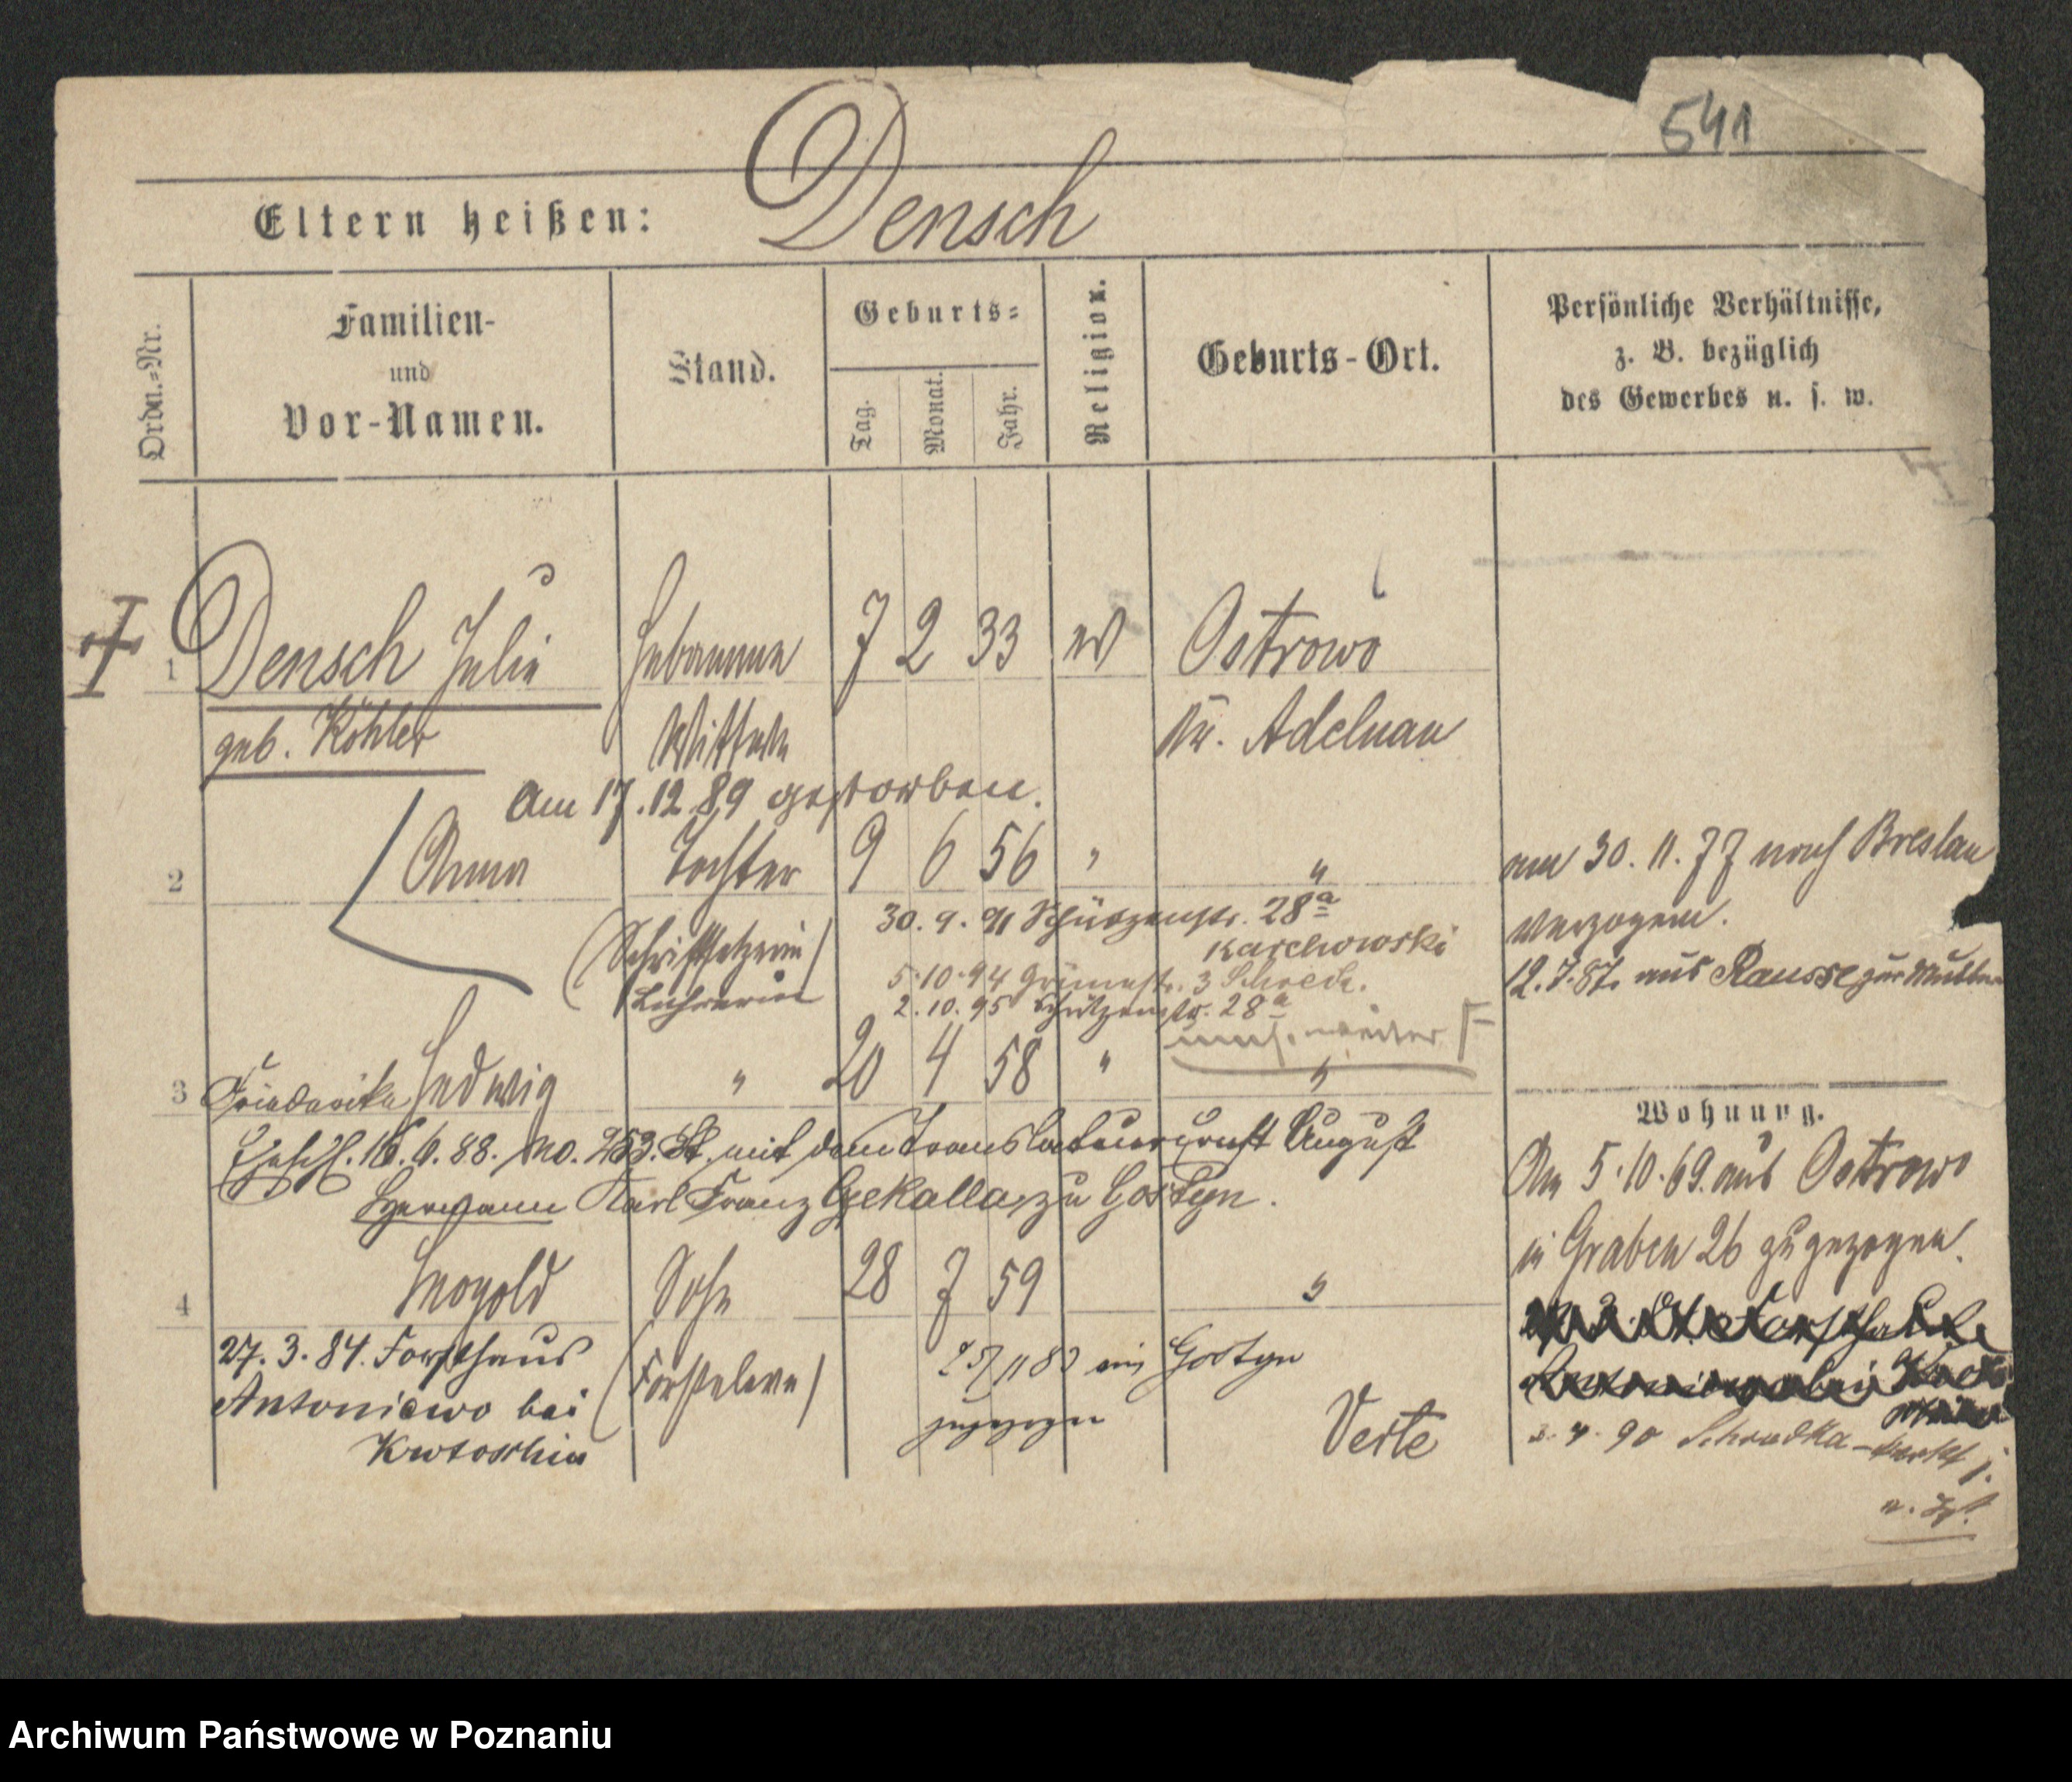 541
Eltern heißen: Densch
Ordn.=Nr.
Familien-
und
Vor-Namen.
Stand.
Geburts=
Tag.
Monat.
Jahr.
Religion.
Geburts-Ort.
Persönliche Verhältnisse,
z. B. bezüglich
des Gewerbes u. s. w.
1 Densch Julie Hebamme 7 2 33 ev Ostrowo
geb. Köhler Wittwe Kr. Adelnau
Am 17.12.89 gestorben.
2 Anna Tochter 9 6 56 " "
am 30.11.77 nach Breslau
verzogen.
12.7.87. aus Rausse zur Mutter
(Schriftsetzerin)
Lehrerin
30.9.91 Schützenstr. 28a
Karchowski
5.10.94 Grünestr. 3
2.10.95 Schützenstr. 28a
3 Friederike Hedwig " 20 4 58 " "
Ehesch. 16.6.88. No. 253. St. mit dem August
Hermann Karl Franz Gekalla, zu Gostyn.
Wohnung.
Am 5.10.69. aus Ostrowo
in Graben 26 zugezogen.
4 Leopold Sohn 28 7 59 "
27.3.84. Forsthaus
Antoniewo bei
Krotoschin
(Forsteleve)
aus Gostyn
zugezogen
Verte
90 Schrodka-markt
Archiwum Państwowe w Poznaniu